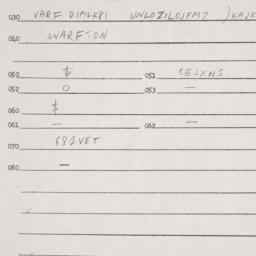 030 VARF DIPILKPI UNLOZILOJFM7
040 WARFTON
050 $ 051 CEJXNS
052 O 053 —
060 $
061 — 062 —
070 681VET
080 —